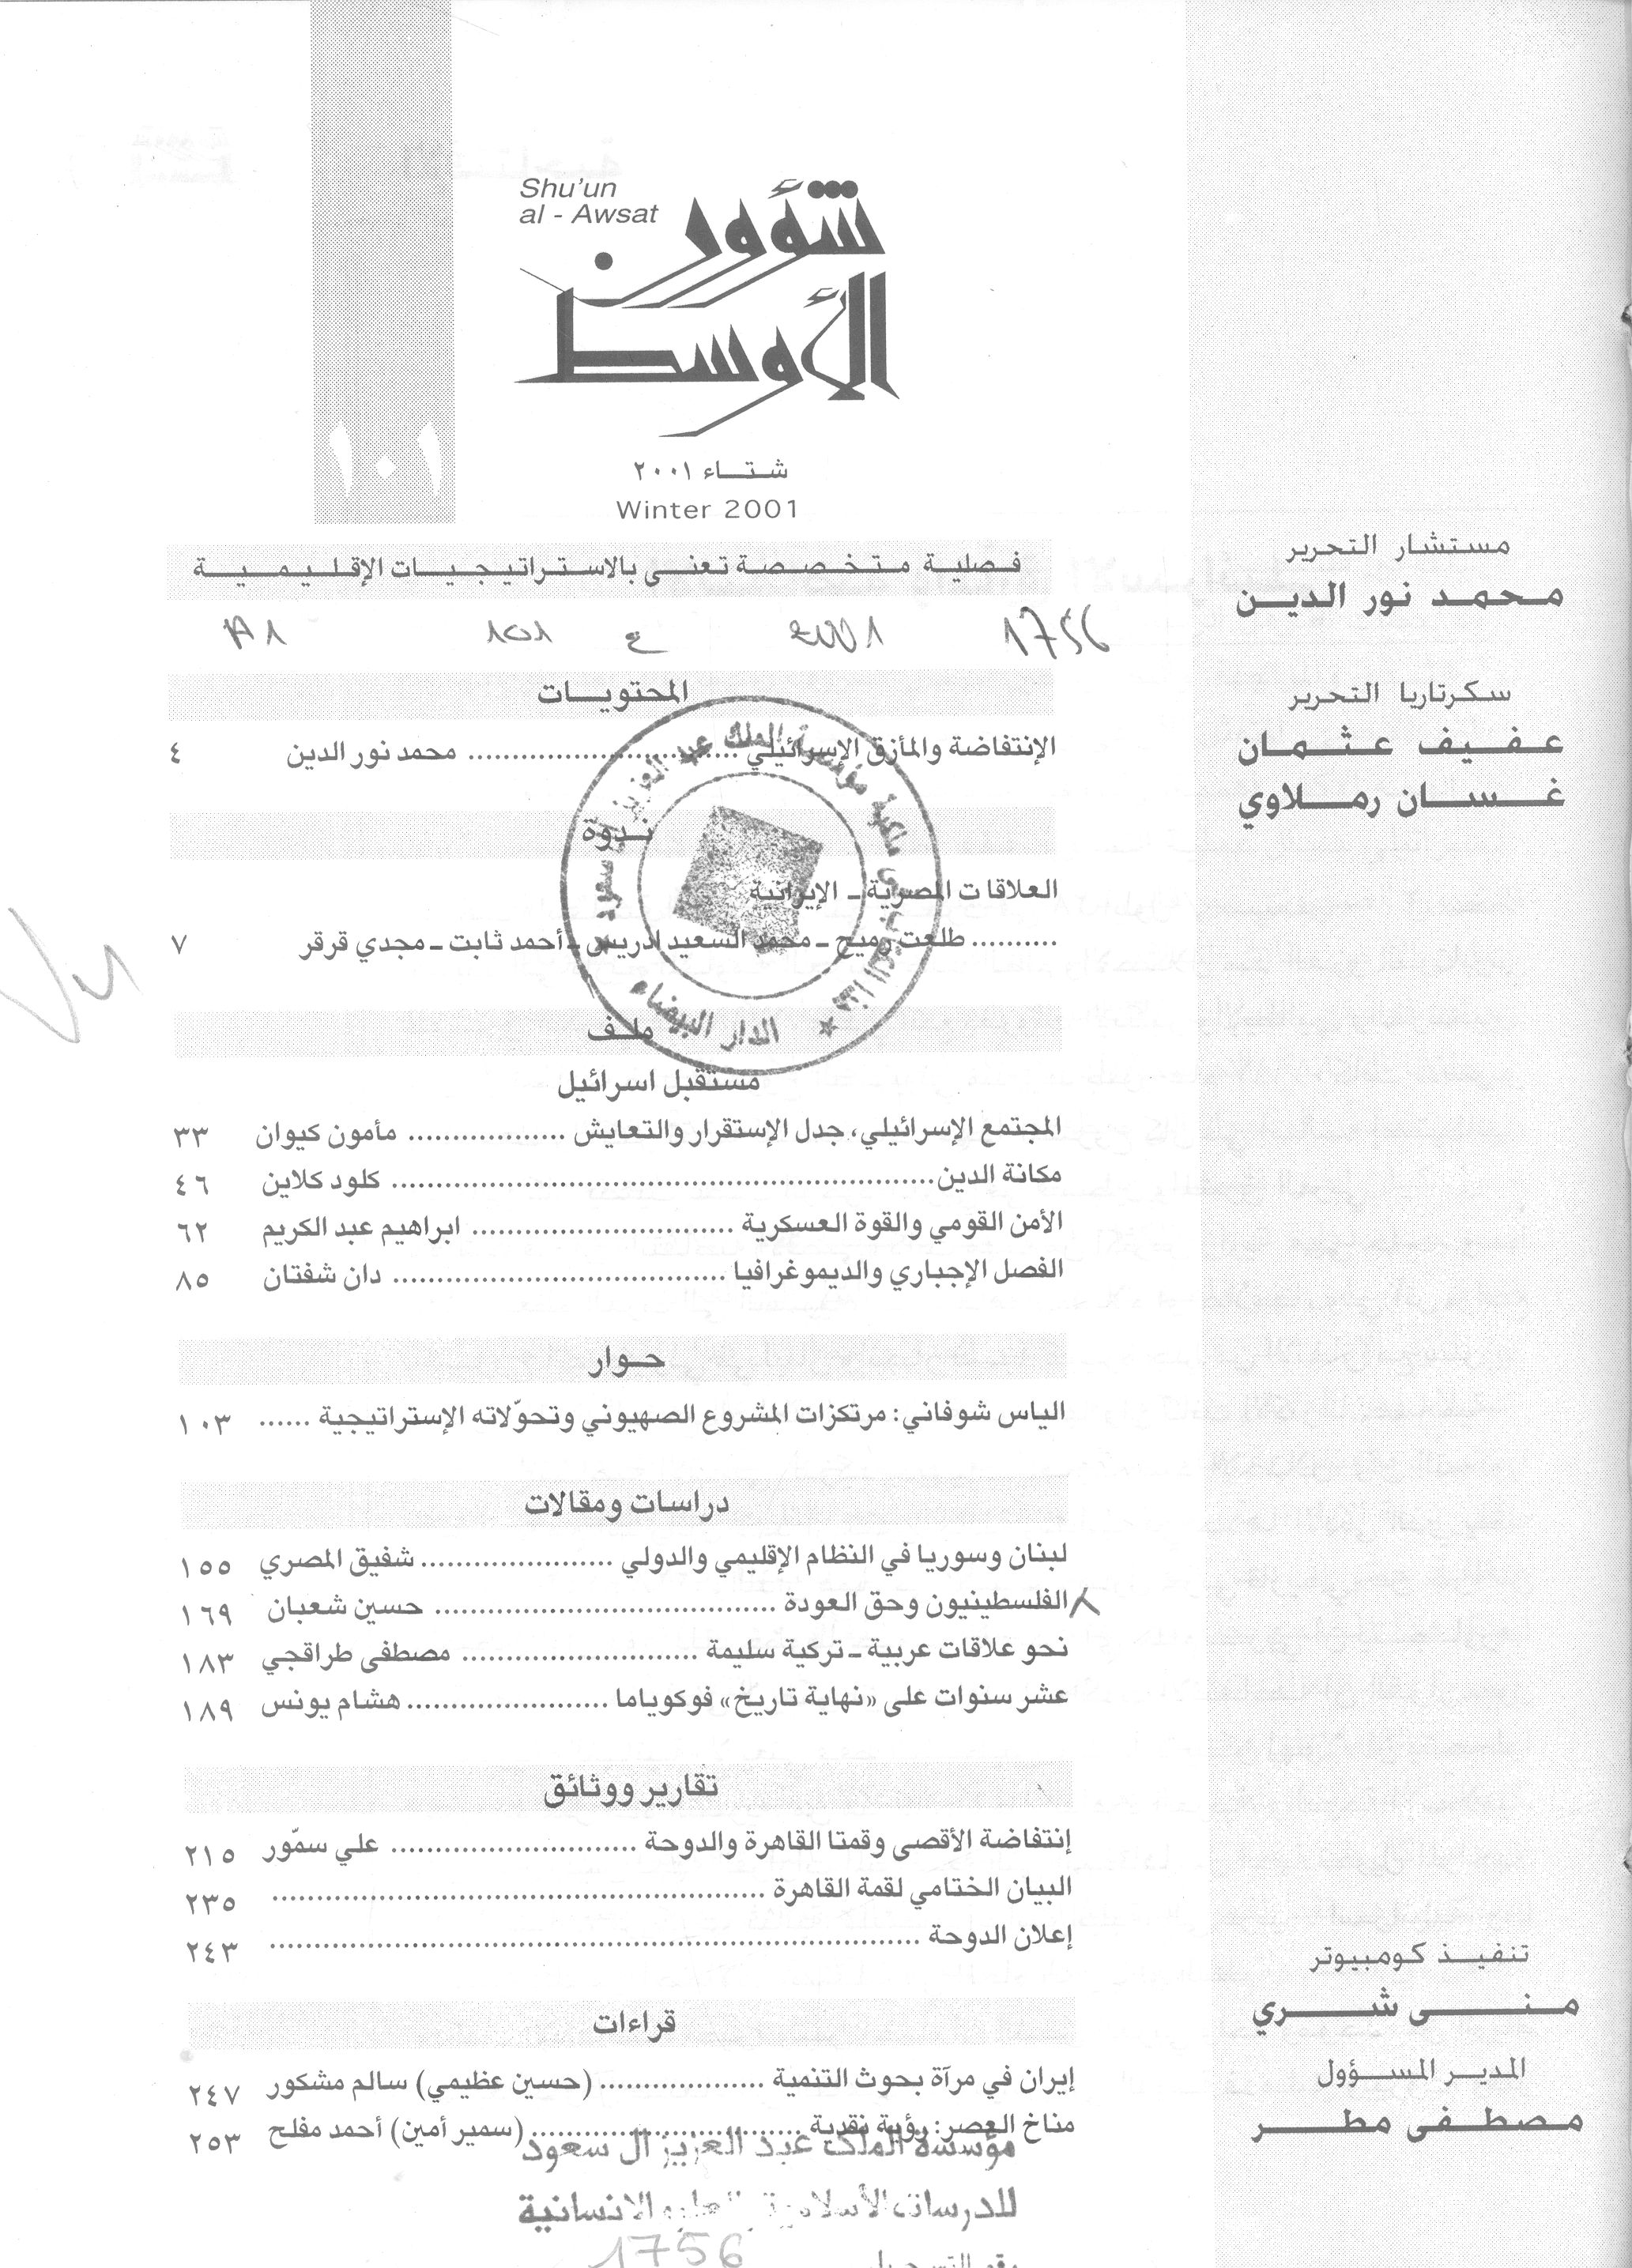 Shu'un
al - Awsat
شؤون
الأوسط
١٠١
شتاء ٢٠٠١
Winter 2001
فصلية متخصصة تعنى بالاستراتيجيات الإقليمية
1756 2001 ع 101
المحتويات
الإنتفاضة والمأزق الإسرائيلي .............................. محمد نور الدين ٤
ندوة
العلاقات المصرية ـ الإيرانية
.......... طلعت رميح ـ محمد السعيد ادريس ـ أحمد ثابت ـ مجدي قرقر ٧
ملف
مستقبل اسرائيل
المجتمع الإسرائيلي، جدل الإستقرار والتعايش .................. مأمون كيوان ٣٣
مكانة الدين.............................................................. كلود كلاين ٤٦
الأمن القومي والقوة العسكرية .............................. ابراهيم عبد الكريم ٦٢
الفصل الإجباري والديموغرافيا ...................................... دان شفتان ٨٥
حوار
الياس شوفاني: مرتكزات المشروع الصهيوني وتحوّلاته الإستراتيجية ...... ١٠٣
دراسات ومقالات
لبنان وسوريا في النظام الإقليمي والدولي ...................... شفيق المصري ١٥٥
الفلسطينيون وحق العودة ....................................... حسين شعبان ١٦٩
نحو علاقات عربية ـ تركية سليمة ........................... مصطفى طراقجي ١٨٣
عشر سنوات على «نهاية تاريخ» فوكوياما ....................... هشام يونس ١٨٩
تقارير ووثائق
إنتفاضة الأقصى وقمتا القاهرة والدوحة ............................ علي سمّور ٢١٥
البيان الختامي لقمة القاهرة ........................................................ ٢٣٥
إعلان الدوحة .......................................................................... ٢٤٣
قراءات
إيران في مرآة بحوث التنمية ................... (حسين عظيمي) سالم مشكور ٢٤٧
مناخ العصر: رؤية نقدية ............................... (سمير أمين) أحمد مفلح ٢٥٣
مؤسسة الملك عبد العزيز آل سعود
للدرسات الأسلامية والعلوم الانسانية
1756
رقم التسجيل
مستشار التحرير
محمد نور الدين
سكرتاريا التحرير
عفيف عثمان
غسان رملاوي
تنفيذ كومبيوتر
منى شري
المدير المسؤول
مصطفى مطر
الدار البيضاء